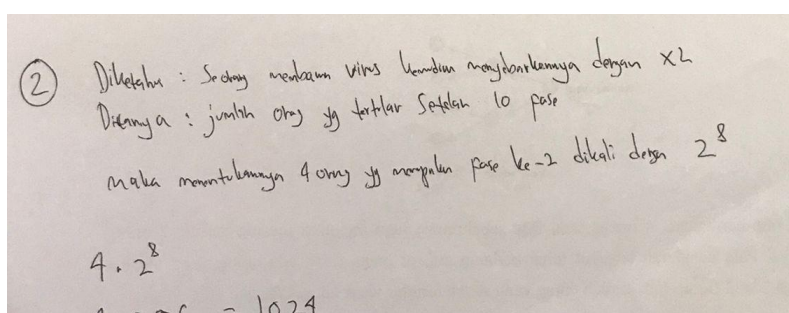 ② Diketahui : Seorang membawa virus kemudian menyebarkannya dengan x2
Ditanya : jumlah orang yg tertular Setelah 10 fase
maka menentukannya 4 orang yg merupakan fase ke-2 dikali dengan 2⁸
4 . 2⁸
= 1024